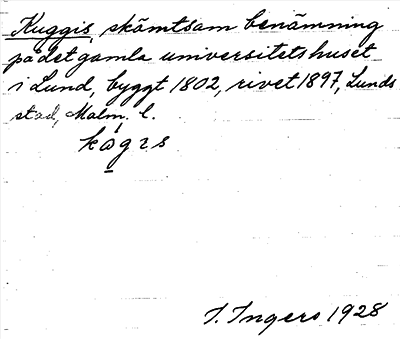 Kuggis, skämtsam benämning
på det gamla universitetshuset
i Lund, byggt 1802, rivet 1897, Lunds
stad, Malm. l.
I. Ingers 1928